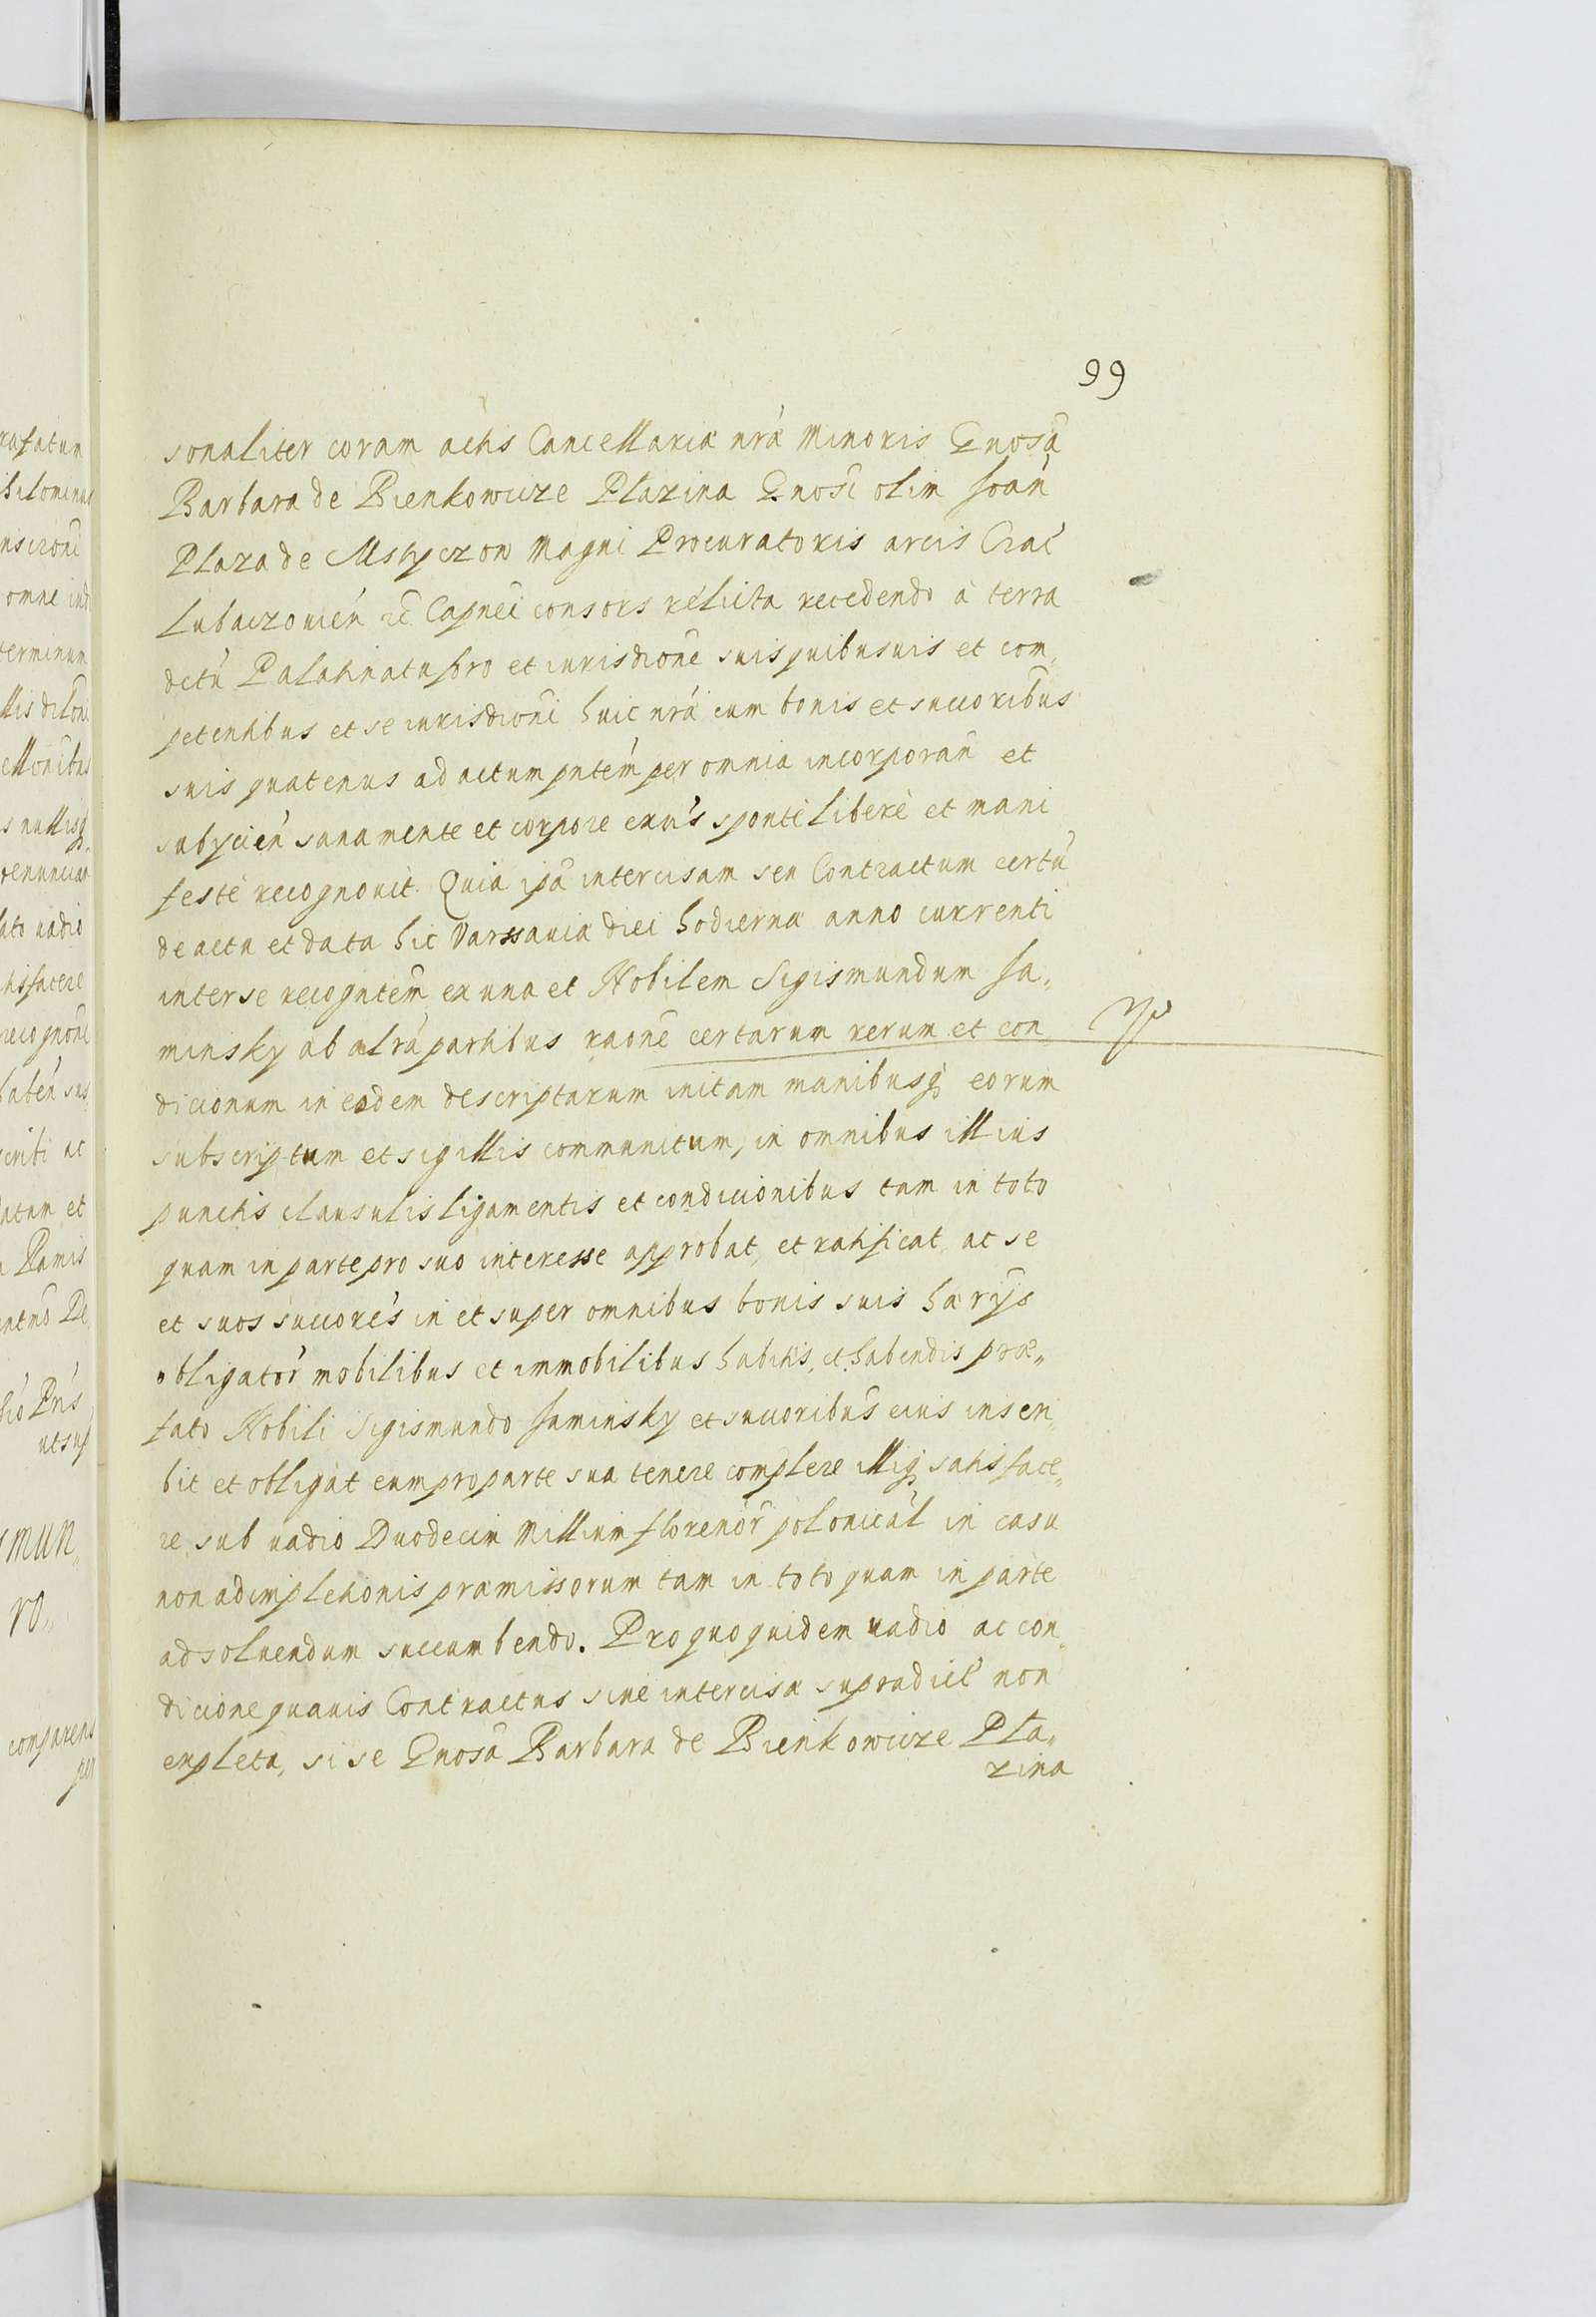 99
sonaliter coram actis Cancellariæ nrã Minoris Gnosã
Barbara de Bienkowicze Plazina Gnosi olim Joañ
Plaza de Mstyczow Magni Procuratoris arcis Crac̃
Lubaczouień zc̃ Capnei consors relicta recedendo à terra
dctũ Palatinatu foro et iurisdione suis quibusuis et com„
petentibus et se iurisdioni huic nrã cum bonis et succoribus
suis quatenus ad actum pntem per omnia incorporañ et
subycień sana mente et corpore exns sponte libere et mani
feste recognouit. Quia ipã intercisam seu Contractum certũ
de actu et data hic Varssauiæ diei hodiernæ anno currenti
inter se recogntem ex una et Nobilem Sigismundum Ja„
minsky ab altrã partibus raone certarum rerum et con
dicionum in eodem descriptarum initam manibusq; eorum
subscriptum et sigillis communitum, in omnibus illius
punctis clausulis ligamentis et condicionibus tam in toto
quam in parte pro suo interesse approbat, et ratificat, ac se
et suos succores in et super omnibus bonis suis hærijs
obligator mobilibus et immobilibus habitis, et habendis præ„
fato Nobili Sigismundo Jaminsky et succoribus eius inscri„
bit et obligat eum pro parte sua tenere complere illiq; satisface„
re, sub uadio Duodecim Millium florenor polonical in casu
non adimpletionis præmissorum tam in toto quam in parte
ad soluendum succumbendo. Pro quo quidem uadio ac con„
dicione quauis Contractus siue intercisæ supradict non
expleta, si se Gnosã Barbara de Bienkowicze Pla„
zina